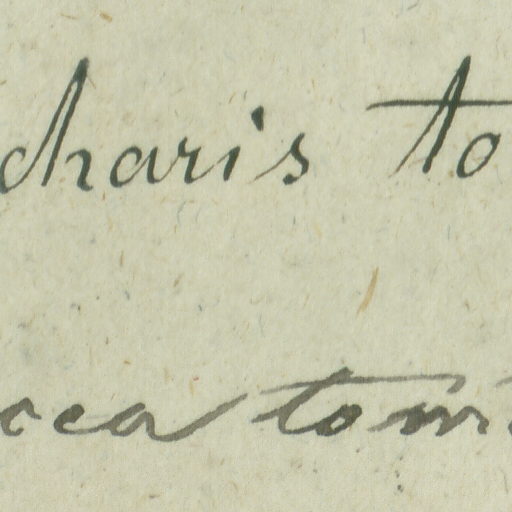 charis to
cea tom